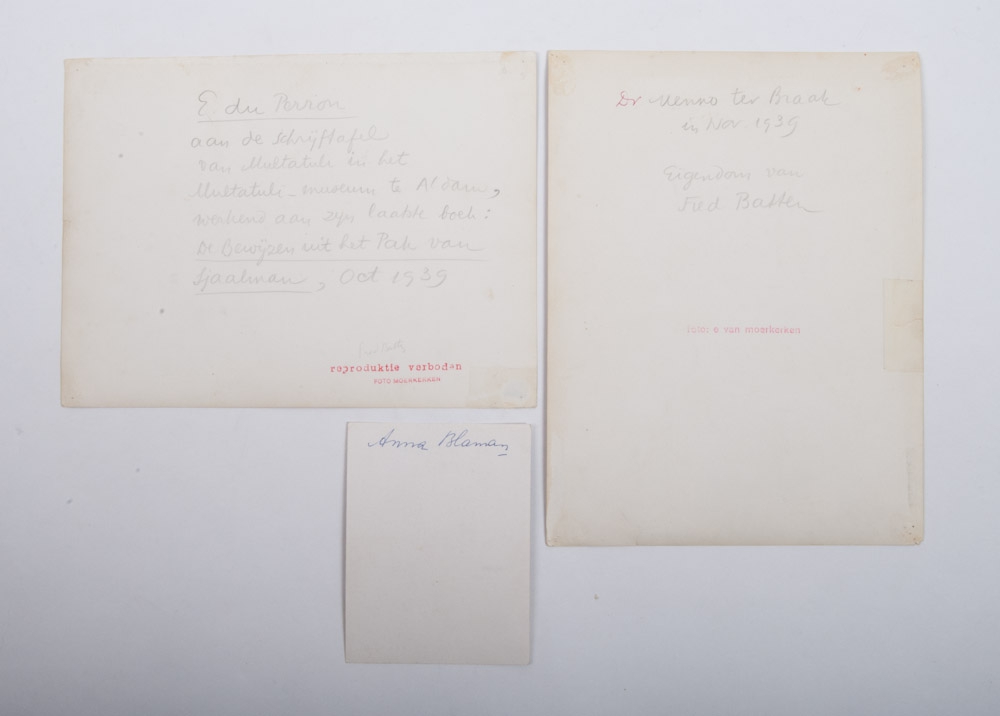 E. du Perron
aan de schrijftafel
van Multatuli in het
Multatuli-museum te A'dam,
werkend aan zijn laatste boek:
De Bewijzen uit het Pak van
Sjaalman, Oct 1939
reproduktie verboden
FOTO MOERKERKEN
Dr Menno ter Braak
in Nov 1939
Eigendom van
Fred Batten
foto: e van moerkerken
Anna Blaman